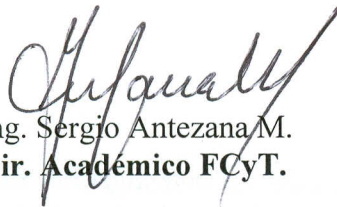 ng. Sergio Antezana M.
ir. Académico FCyT.